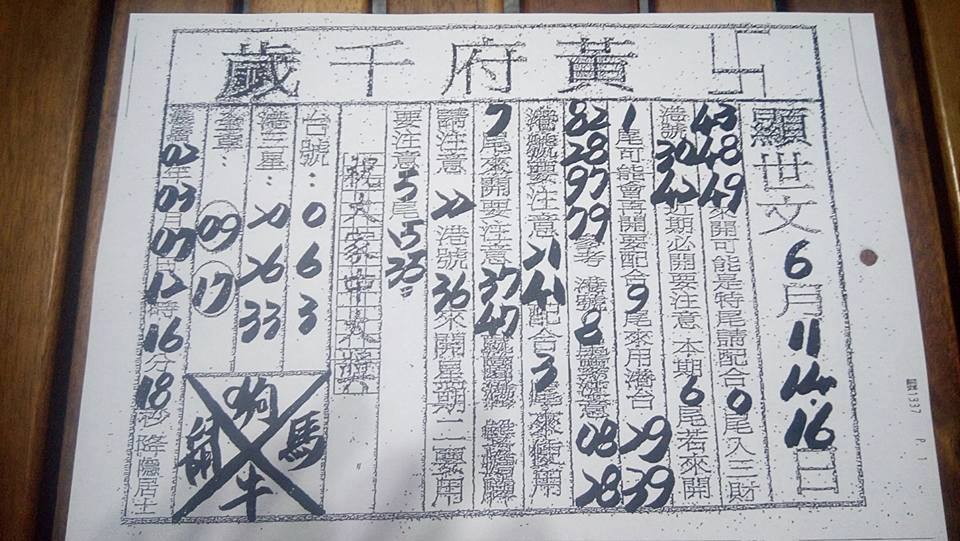 卍黃府千歲
顯世文6月11.14.16日
43 48 49 來開可能是特尾請配合0尾入三財
港號 30 42 近期必開要注意 本期6尾若來開
1尾可能會再開要配合9尾來用港台 29 39
82 28 97 79 參考 港號 8 注意 08 28
港號要注意 21 41 配合3尾來使用
7尾來開要注意 37 47
請注意 22 港號 36 來開星期二要用
要注意5尾 15 35
祝大家中大獎
台號： 0 6 3
港三星： 20 26 33
09 17
02年03月07日12時16分18秒 降隱居士
狗
鼠 馬
牛
1337 P. 1